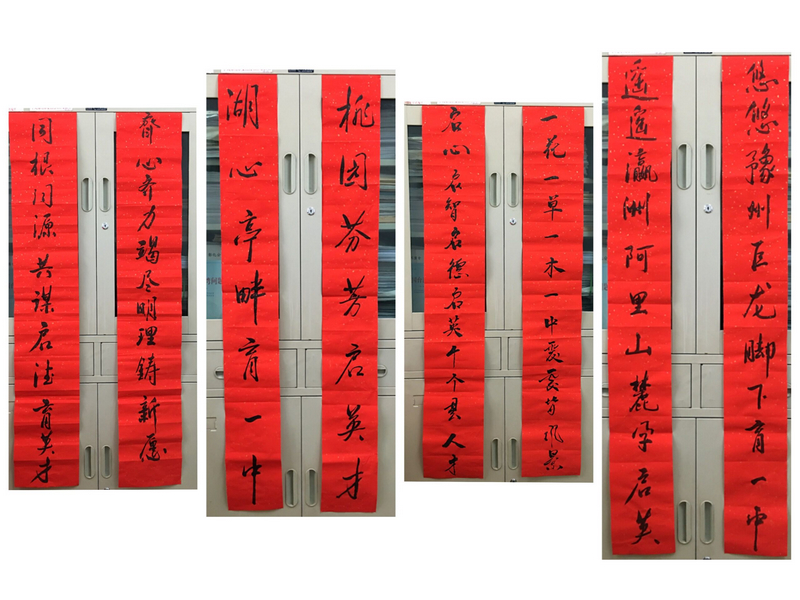 齊心齐力竭尽明理鋳新愿
同根同源共谋启德育英才
桃园芬芳启英才
湖心亭畔育一中
一花一草一木一中處處皆风景
启心启智启德启英个个具人才
悠悠豫州巨龙脚下育一中
遥遥瀛洲阿里山麓孕启英